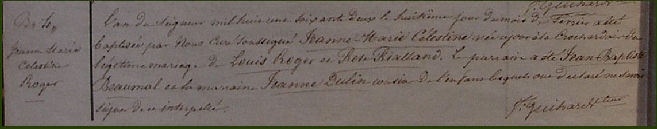 f. Guichard
Jeanne Marie
Célestine
Roger
L'an du Seigneur mil huit cent soixante deux le huitième jour du mois de Février a été
baptisée par Nous Curé soussigné Jeanne Marie Célestine née ce jour à la
légitime mariage de Louis Roger et Rose Bialland. Le parrain a été Jean Baptiste
Beaumal et la marraine Jeanne Dulin cousin de l'enfant lesquels ont déclaré ne savoir
signer de ce interpellés.
f. Guichard